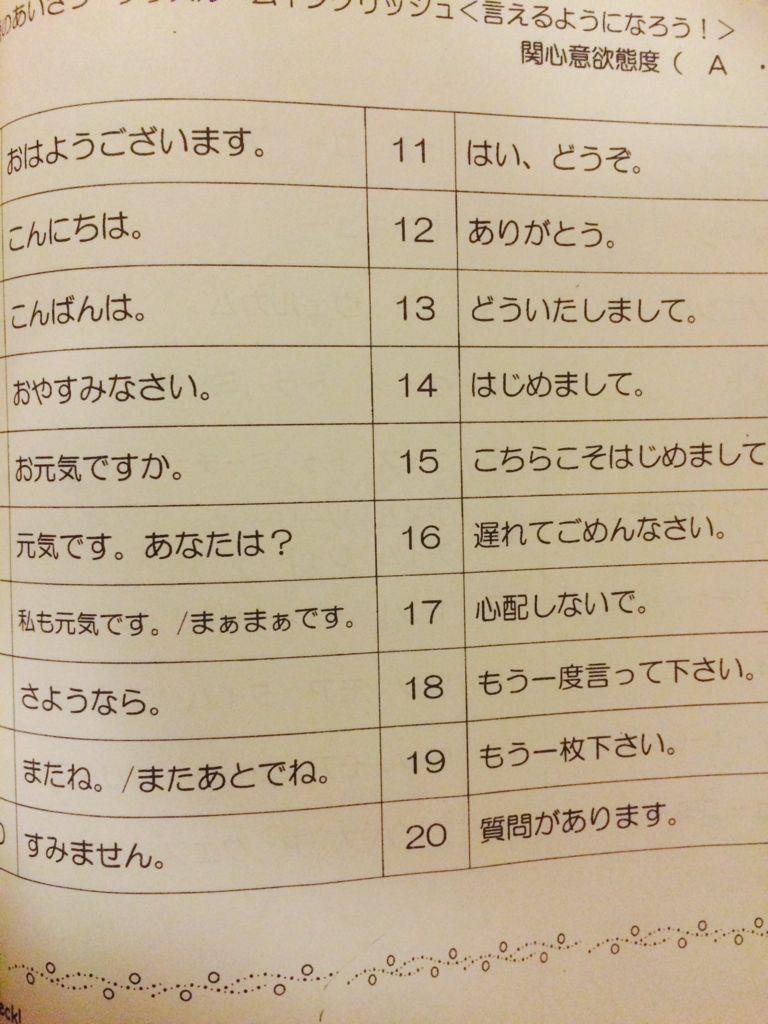 のあいさつ・クラスルームイングリッシュ<言えるようになろう！>
関心意欲態度（ A ・
おはようございます。 11 はい、どうぞ。
こんにちは。 12 ありがとう。
こんばんは。 13 どういたしまして。
おやすみなさい。 14 はじめまして。
お元気ですか。 15 こちらこそはじめまして
元気です。あなたは？ 16 遅れてごめんなさい。
私も元気です。/まぁまぁです。 17 心配しないで。
さようなら。 18 もう一度言って下さい。
またね。/またあとでね。 19 もう一枚下さい。
すみません。 20 質問があります。